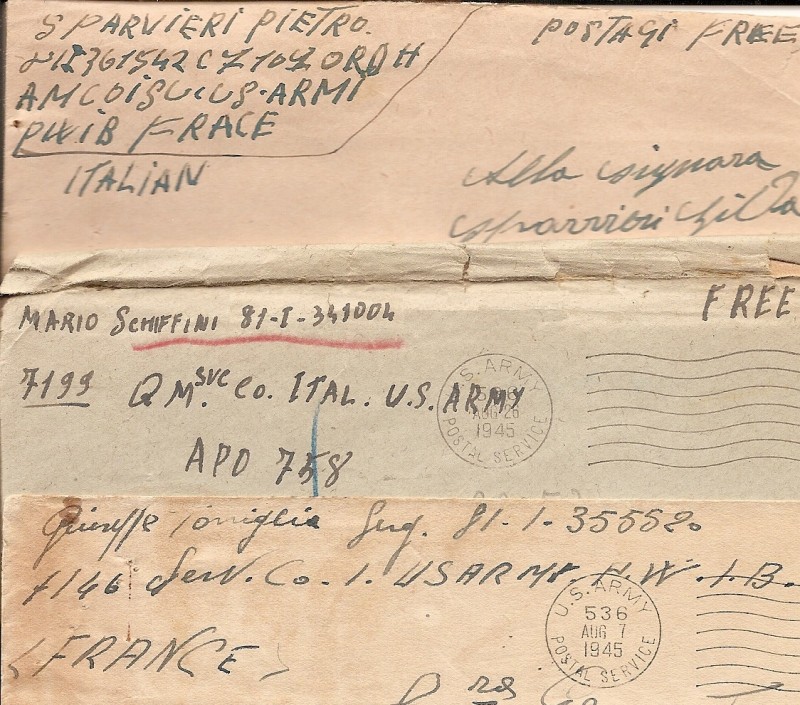 SPARVIERI PIETRO.
POSTAGI FREE
AMCOISU.US.ARMI
PWIB FRACE
ITALIAN
Alla signora
Sparvieri Gilda
MARIO SCHIFFINI 81-I-341004
FREE
7199 QM. SVC CO. ITAL. U.S. ARMY
APO 758
U.S. ARMY
536
AUG 26
1945
POSTAL SERVICE
Giuseppe Serg. 81. I. 355520
7146 Serv. Co. I. USARMY. H.W. I.B.
(FRANCE)
U.S. ARMY
536
AUG 7
1945
POSTAL SERVICE